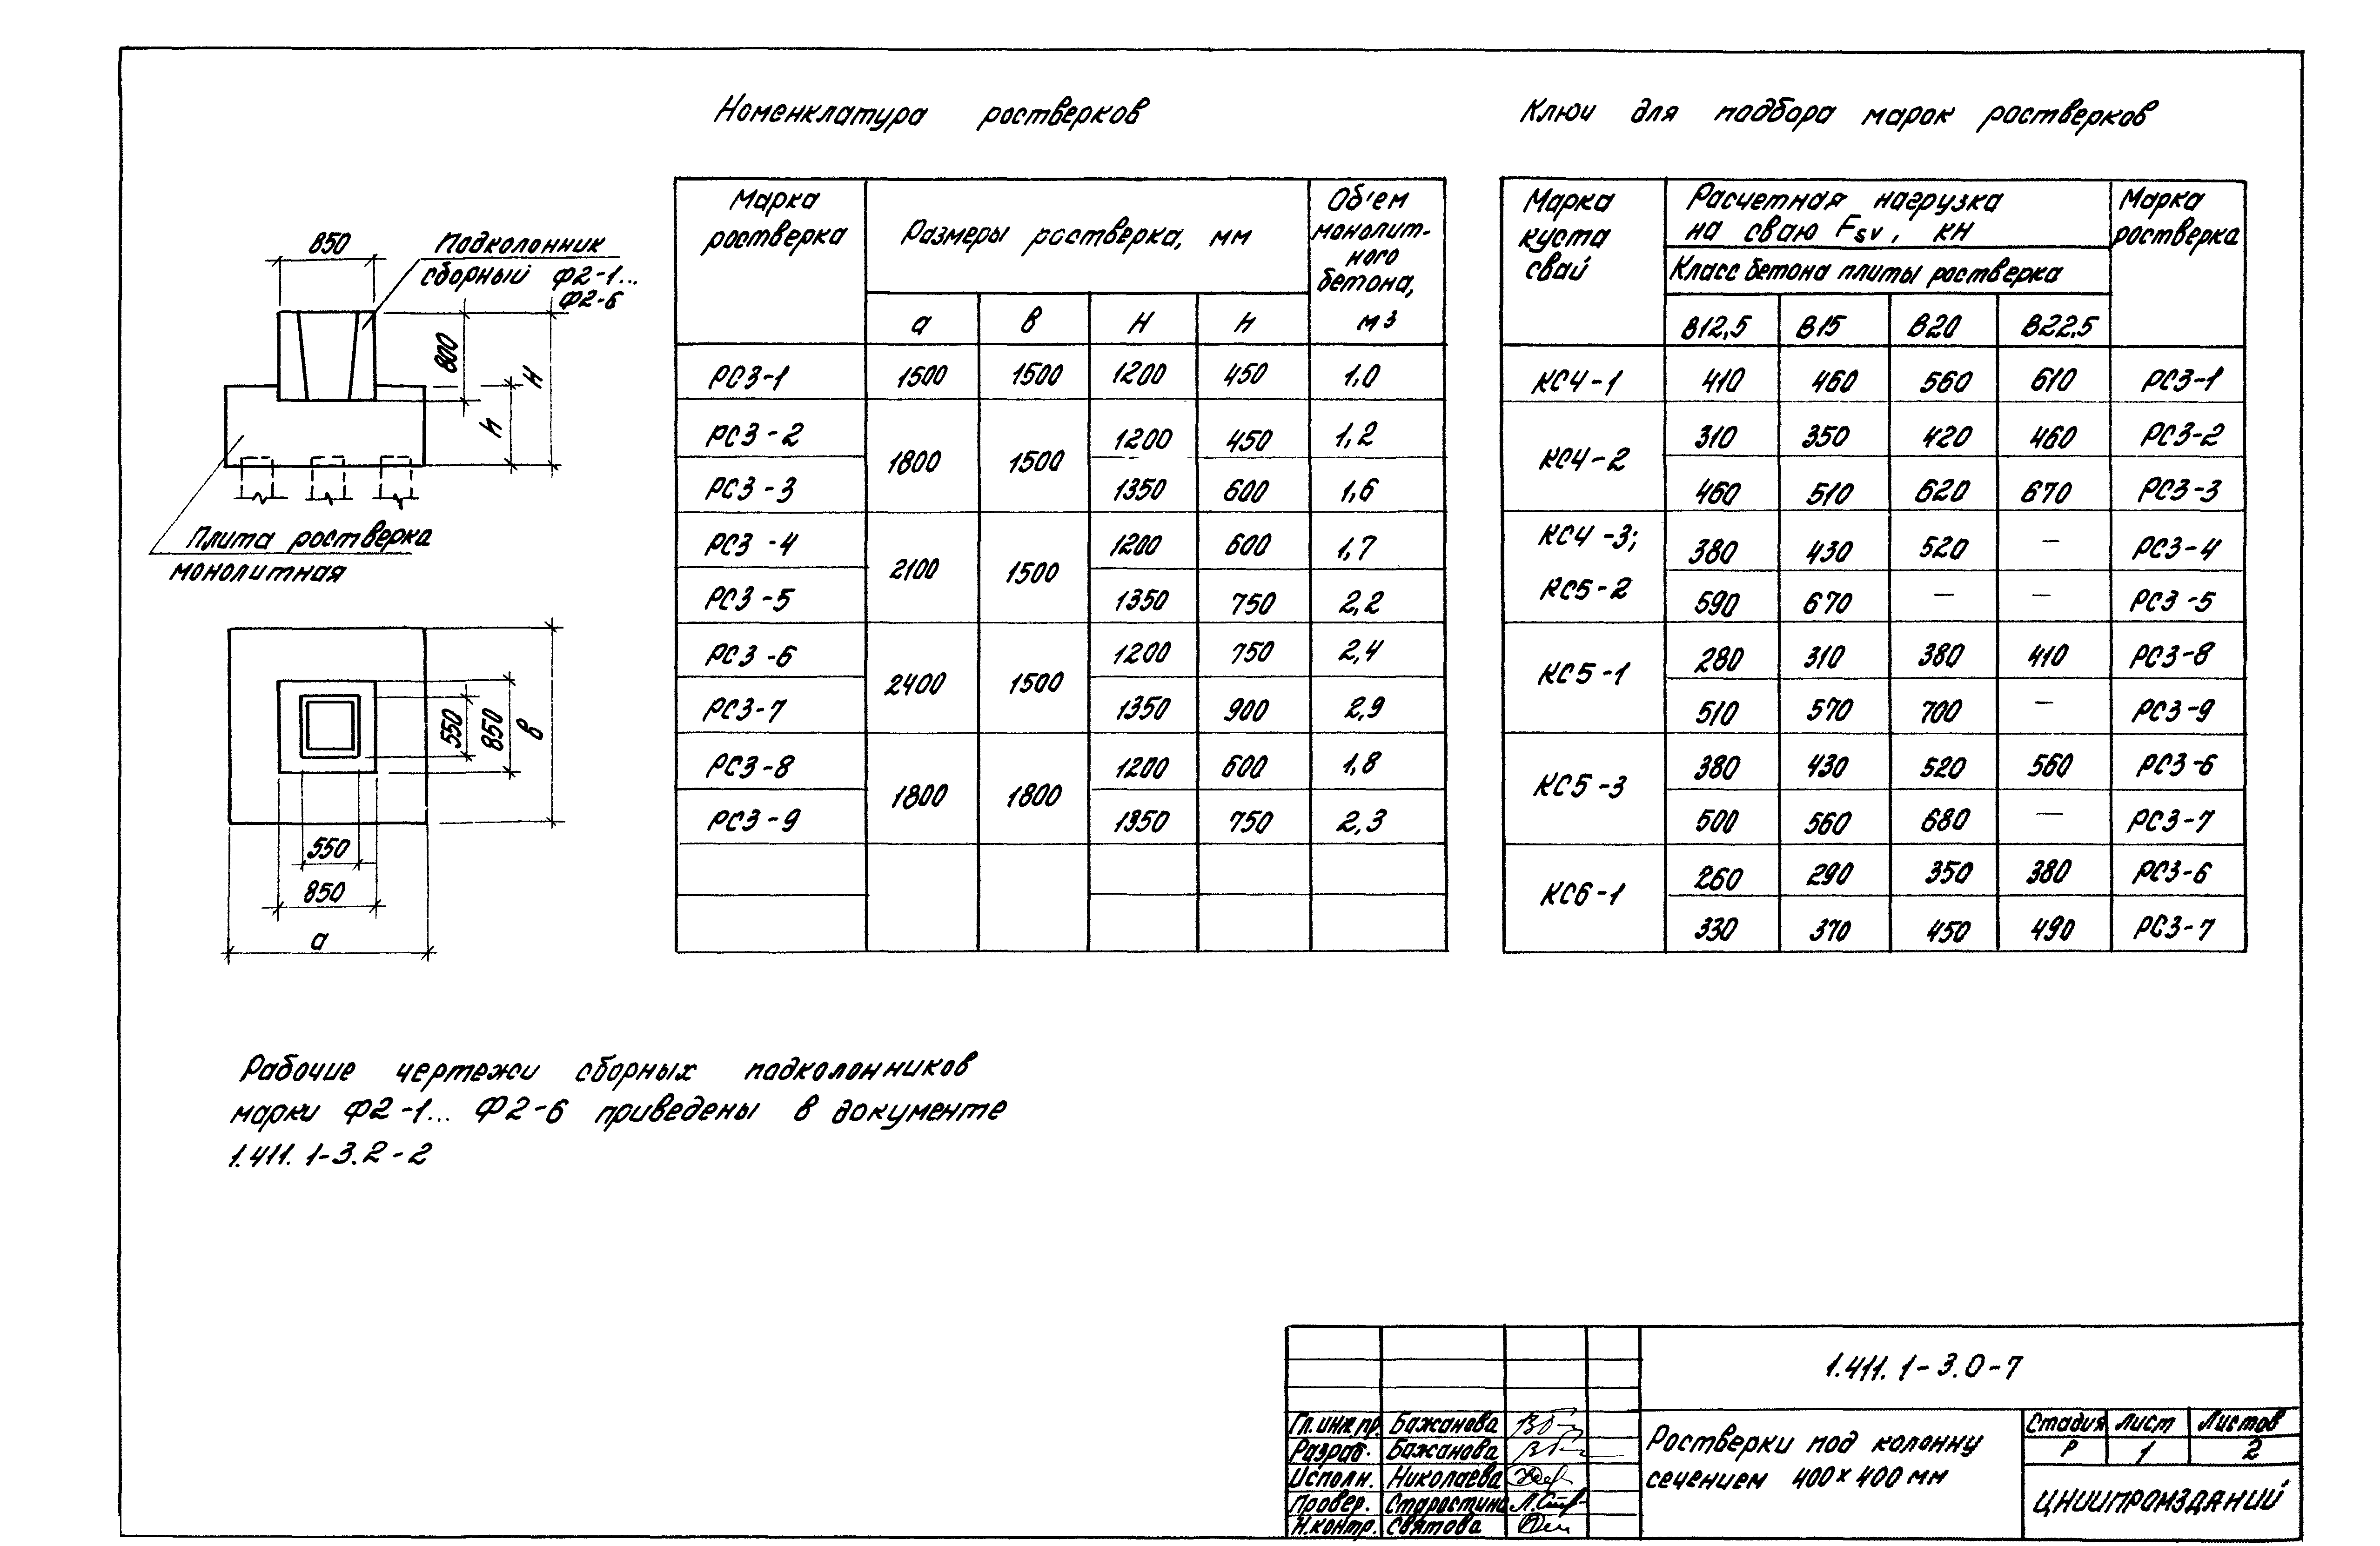 Номенклатура ростверков
Ключи для подбора марок ростверков
850
Подколонник
сборный Ф2-1...
Ф2-6
800
H
h
Плита ростверка
монолитная
550
850
в
550
850
а
Марка ростверка | Размеры ростверка, мм | Об'ем монолит-ного бетона, м3
а | в | H | h
РС3-1 | 1500 | 1500 | 1200 | 450 | 1,0
РС3-2 | 1800 | 1500 | 1200 | 450 | 1,2
РС3-3 | 1350 | 600 | 1,6
РС3-4 | 2100 | 1500 | 1200 | 600 | 1,7
РС3-5 | 1350 | 750 | 2,2
РС3-6 | 2400 | 1500 | 1200 | 750 | 2,4
РС3-7 | 1350 | 900 | 2,9
РС3-8 | 1800 | 1800 | 1200 | 600 | 1,8
РС3-9 | 1350 | 750 | 2,3
Марка куста свай | Расчетная нагрузка на сваю Fsv, кН | Марка ростверка
Класс бетона плиты ростверка
В12,5 | В15 | В20 | В22,5
КС4-1 | 410 | 460 | 560 | 610 | РС3-1
КС4-2 | 310 | 350 | 420 | 460 | РС3-2
460 | 510 | 620 | 670 | РС3-3
КС4-3; | 380 | 430 | 520 | — | РС3-4
КС5-2 | 590 | 670 | — | — | РС3-5
КС5-1 | 280 | 310 | 380 | 410 | РС3-8
510 | 570 | 700 | — | РС3-9
КС5-3 | 380 | 430 | 520 | 560 | РС3-6
500 | 560 | 680 | — | РС3-7
КС6-1 | 260 | 290 | 350 | 380 | РС3-6
330 | 370 | 450 | 490 | РС3-7
Рабочие чертежи сборных подколонников
марки Ф2-1... Ф2-6 приведены в документе
1.411.1-3.2-2
1.411.1-3.0-7
Гл.инж.пр. Бажанова
Разраб. Бажанова
Исполн. Николаева
Провер. Старостина
Н.контр. Святова
Ростверки под колонну
сечением 400×400 мм
Стадия Лист Листов
Р 1 2
ЦНИИПРОМЗДАНИЙ